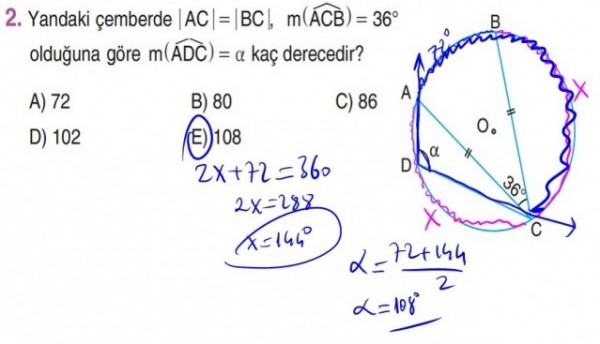 2. Yandaki çemberde |AC| = |BC|, m(ACB) = 36°
olduğuna göre m(ADC) = α kaç derecedir?
A) 72 B) 80 C) 86
D) 102 E) 108
2x+72=360
2x=288
x=144°
α = 72+144
2
α=108°
72°
B
A
X
O
D
α
36°
X
C